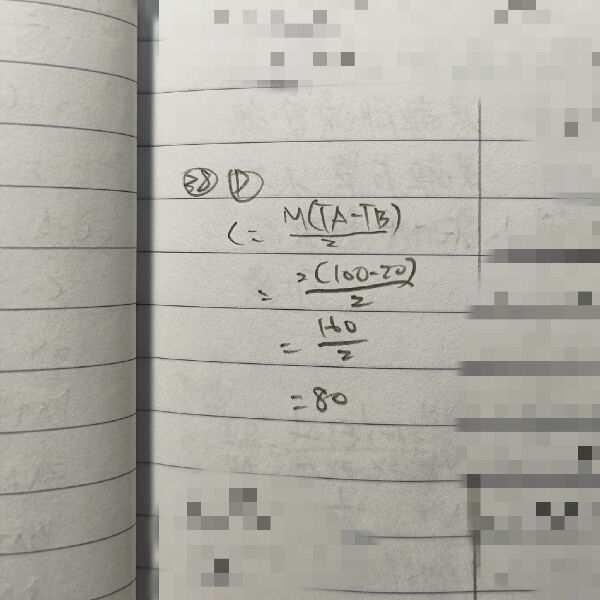 38 D
C = M(TA-TB)/2
= 2(100-20)/2
= 160/2
= 80